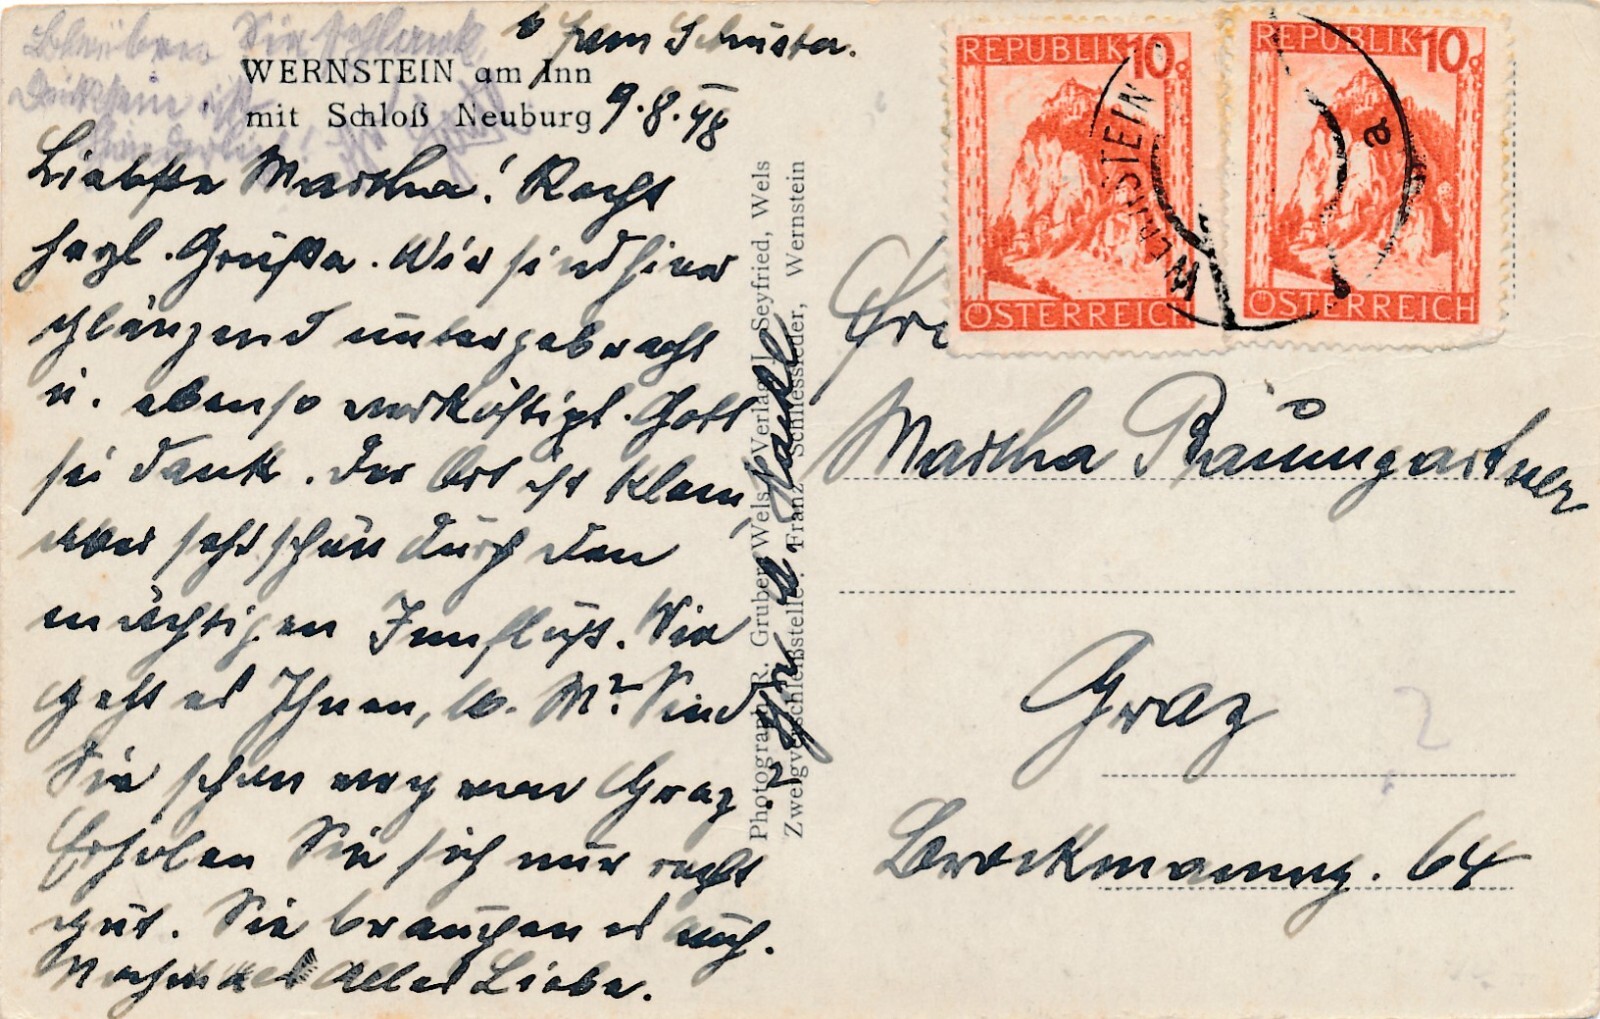 Bleiben Sie schlank
WERNSTEIN am Inn
mit Schloß Neuburg
9.8.48
Liebste Martha! Recht
herzl. Grüße. Wir sind hier
glänzend untergebracht
u. ebenso verköstigt. Gott
sei dank. Der Ort ist klein,
aber sehr schön durch den
mächtigen Innfluß. Wie
geht es Ihnen, lb. M? Sind
Sie schon weg von Graz?
Erholen Sie sich nur recht
gut. Sie brauchen es auch.
Nochmals Alles Liebe.
Photograph R. Gruber, Wels [Verlag J. Seyfried, Wels
Zweigverschleißstelle: Franz Schliessleder, Wernstein
REPUBLIK 10g
ÖSTERREICH
REPUBLIK 10g
ÖSTERREICH
WERNSTEIN
a
Martha Baumgartner
Graz
Brockmanng. 64